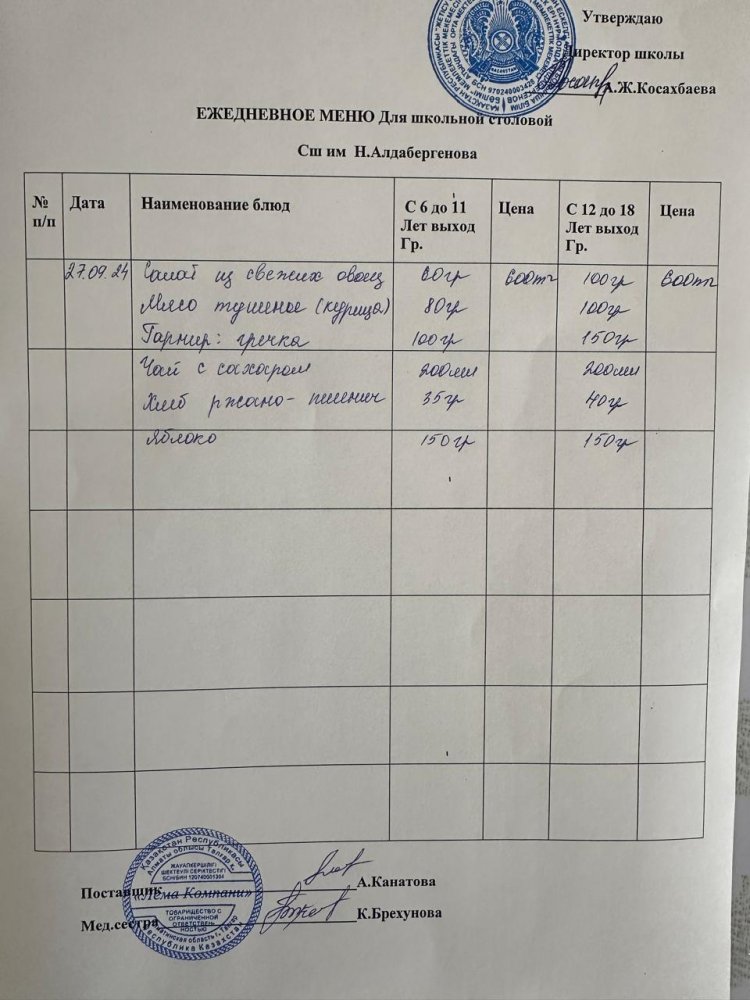 Утверждаю
Директор школы
А.Ж.Косахбаева
ЕЖЕДНЕВНОЕ МЕНЮ Для школьной столовой
Сш им Н.Алдабергенова
№ п/п Дата Наименование блюд С 6 до 11 Лет выход Гр. Цена С 12 до 18 Лет выход Гр. Цена
27.09.24 Салат из свежих овощ 60гр 600тг 100гр 600тг
Мясо тушеное (курица) 80гр 100гр
Гарнир: гречка 100гр 150гр
Чай с сахаром 200мл 200мл
Хлеб ржано-пшенич 35гр 40гр
Яблоко 150гр 150гр
Казахстан Республикасы
Алматы облысы Талгар қ.
ЖАУАПКЕРШІЛІГІ
ШЕКТЕУЛІ СЕРІКТЕСТІГІ
Поставщик «Лёма Компани» А.Канатова
ТОВАРИЩЕСТВО С
ОГРАНИЧЕННОЙ
ОТВЕТСТВЕН
НОСТЬЮ
Мед.сестра К.Брехунова
Республика Казахстан